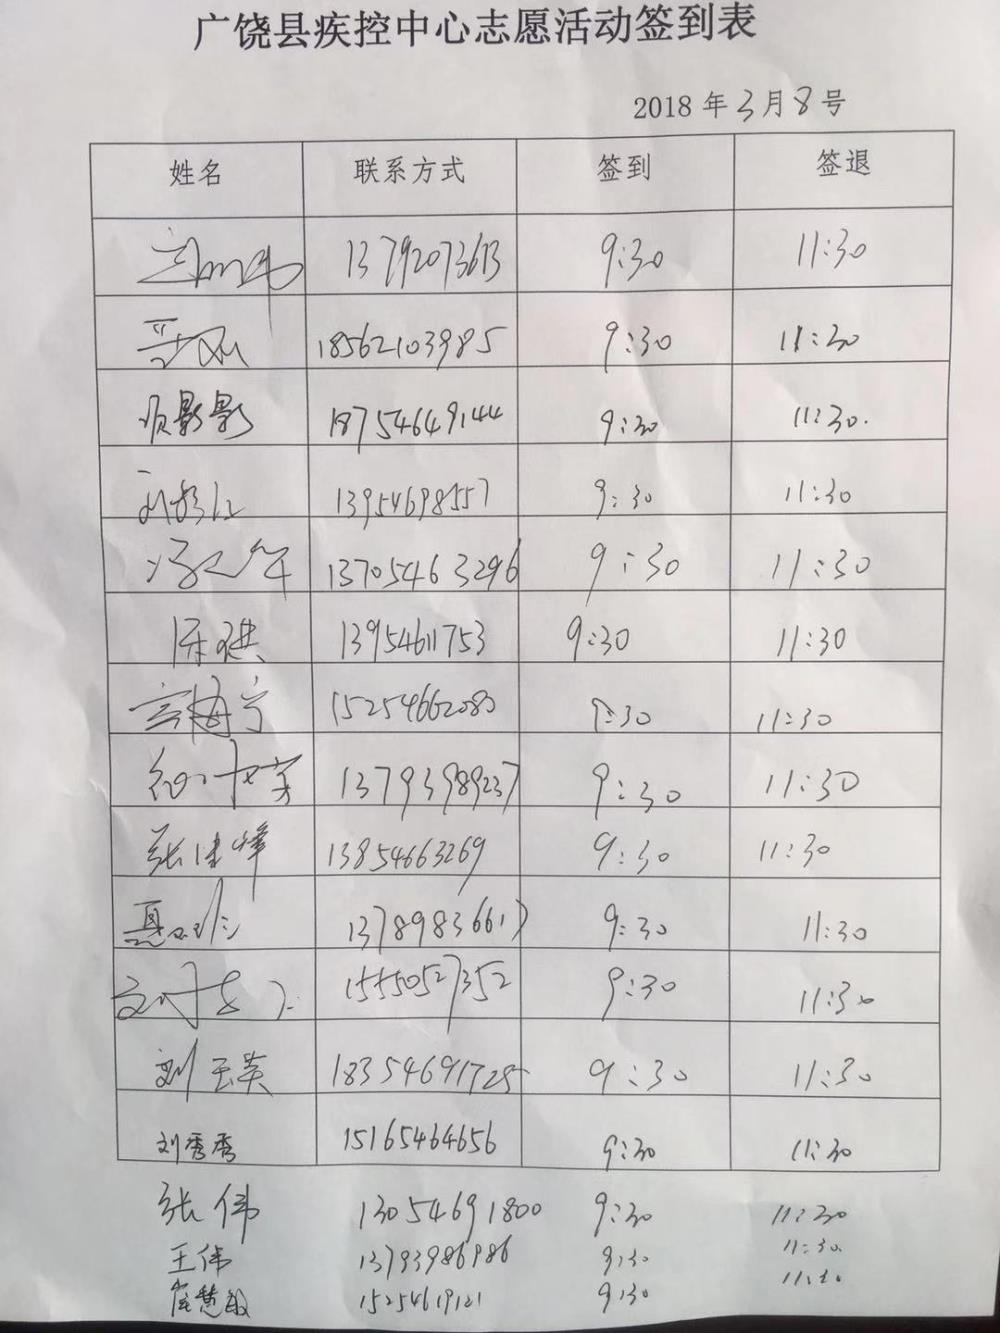 广饶县疾控中心志愿活动签到表
2018年3月8号
姓名 联系方式 签到 签退
13792073613 9:30 11:30
18562103985 9:30 11:30
影影 18754649144 9:30 11:30.
13954698557 9:30 11:30
13705463296 9:30 11:30
13954611753 9:30 11:30
海宁 15254662080 9:30 11:30
13793989237 9:30 11:30
张建峰 13854663269 9:30 11:30
13789836617 9:30 11:30
15550527352 9:30 11:30
刘玉英 18354691725 9:30 11:30
刘秀秀 15165464656 9:30 11:30
张伟 13054691800 9:30 11:30
王伟 13793986986 9:30 11:30.
崔慧敏 15254619121 9:30 11:30